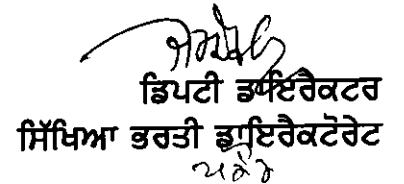 ਡਿਪਟੀ ਡਾਇਰੈਕਟਰ
ਸਿੱਖਿਆ ਭਰਤੀ ਡਾਇਰੈਕਟੋਰੇਟ